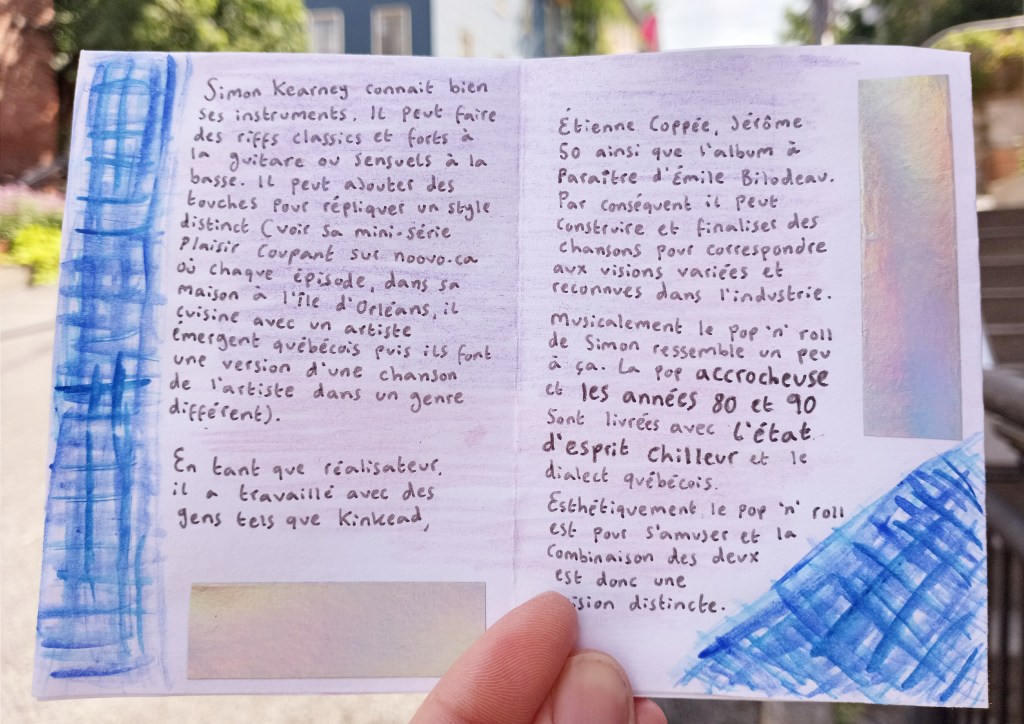 Simon Kearney connait bien
ses instruments. Il peut faire
des riffs classics et forts à
la guitare ou sensuels à la
basse. Il peut ajouter des
touches pour répliquer un style
distinct (voir sa mini-série
Plaisir Coupant sur noovo.ca
où chaque épisode, dans sa
maison à l'île d'Orléans, il
cuisine avec un artiste
émergent québécois puis ils font
une version d'une chanson
de l'artiste dans un genre
différent).
En tant que réalisateur,
il a travaillé avec des
gens tels que Kinkead,
Étienne Coppée, Jérôme
50 ainsi que l'album à
paraître d'Émile Bilodeau.
Par conséquent il peut
construire et finaliser des
chansons pour correspondre
aux visions variées et
reconnues dans l'industrie.
Musicalement le pop 'n' roll
de Simon ressemble un peu
à ça. La pop accrocheuse
et les années 80 et 90
sont livrées avec l'état
d'esprit chilleur et le
dialect québécois.
Esthétiquement le pop 'n' roll
est pour s'amuser et la
combinaison des deux
est donc une
ision distincte.